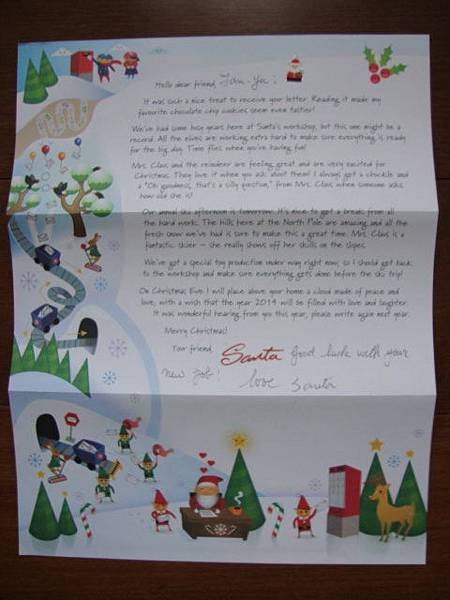 Hello dear friend, Jan-Yu :
It was such a nice treat to receive your letter. Reading it made my
favourite chocolate chip cookies seem even tastier!
We've had some busy years here at Santa's workshop, but this one might be a
record. All the elves are working extra hard to make sure everything is ready
for the big day. Time flies when you're having fun!
Mrs. Claus and the reindeer are feeling great and are very excited for
Christmas. They love it when you ask about them! I always get a chuckle and
a "Oh goodness, that's a silly question," from Mrs. Claus when someone asks
how old she is!
Our annual ski afternoon is tomorrow. It's nice to get a break from all
the hard work. The hills here at the North Pole are amazing and all the
fresh snow we've had is sure to make this a great time. Mrs. Claus is a
fantastic skier – she really shows off her skills on the slopes.
We've got a special toy production under way right now, so I should get back
to the workshop and make sure everything gets done before the ski trip!
On Christmas Eve I will place above your home a cloud made of peace and
love, with a wish that the year 2014 will be filled with love and laughter.
It was wonderful hearing from you this year, please write again next year.
Merry Christmas!
Your friend, Santa Good luck with your
new job! love Santa